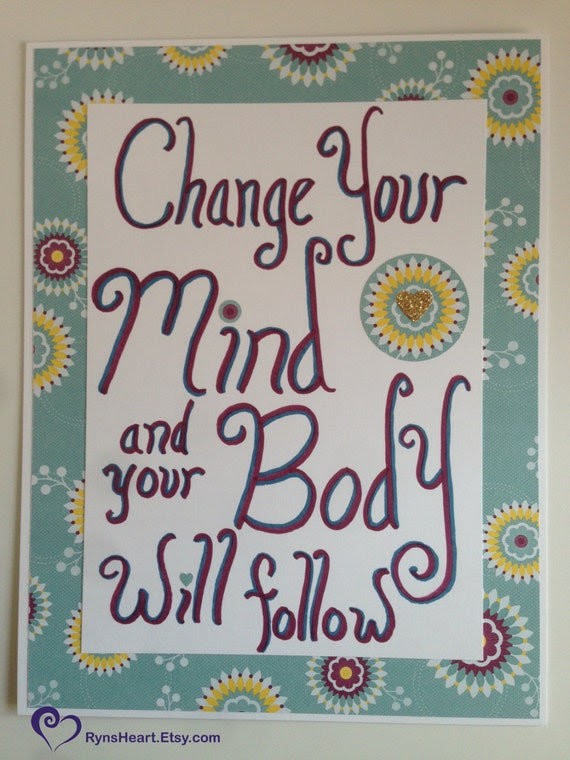 Change Your
Mind
and
your Body
Will follow
RynsHeart.Etsy.com